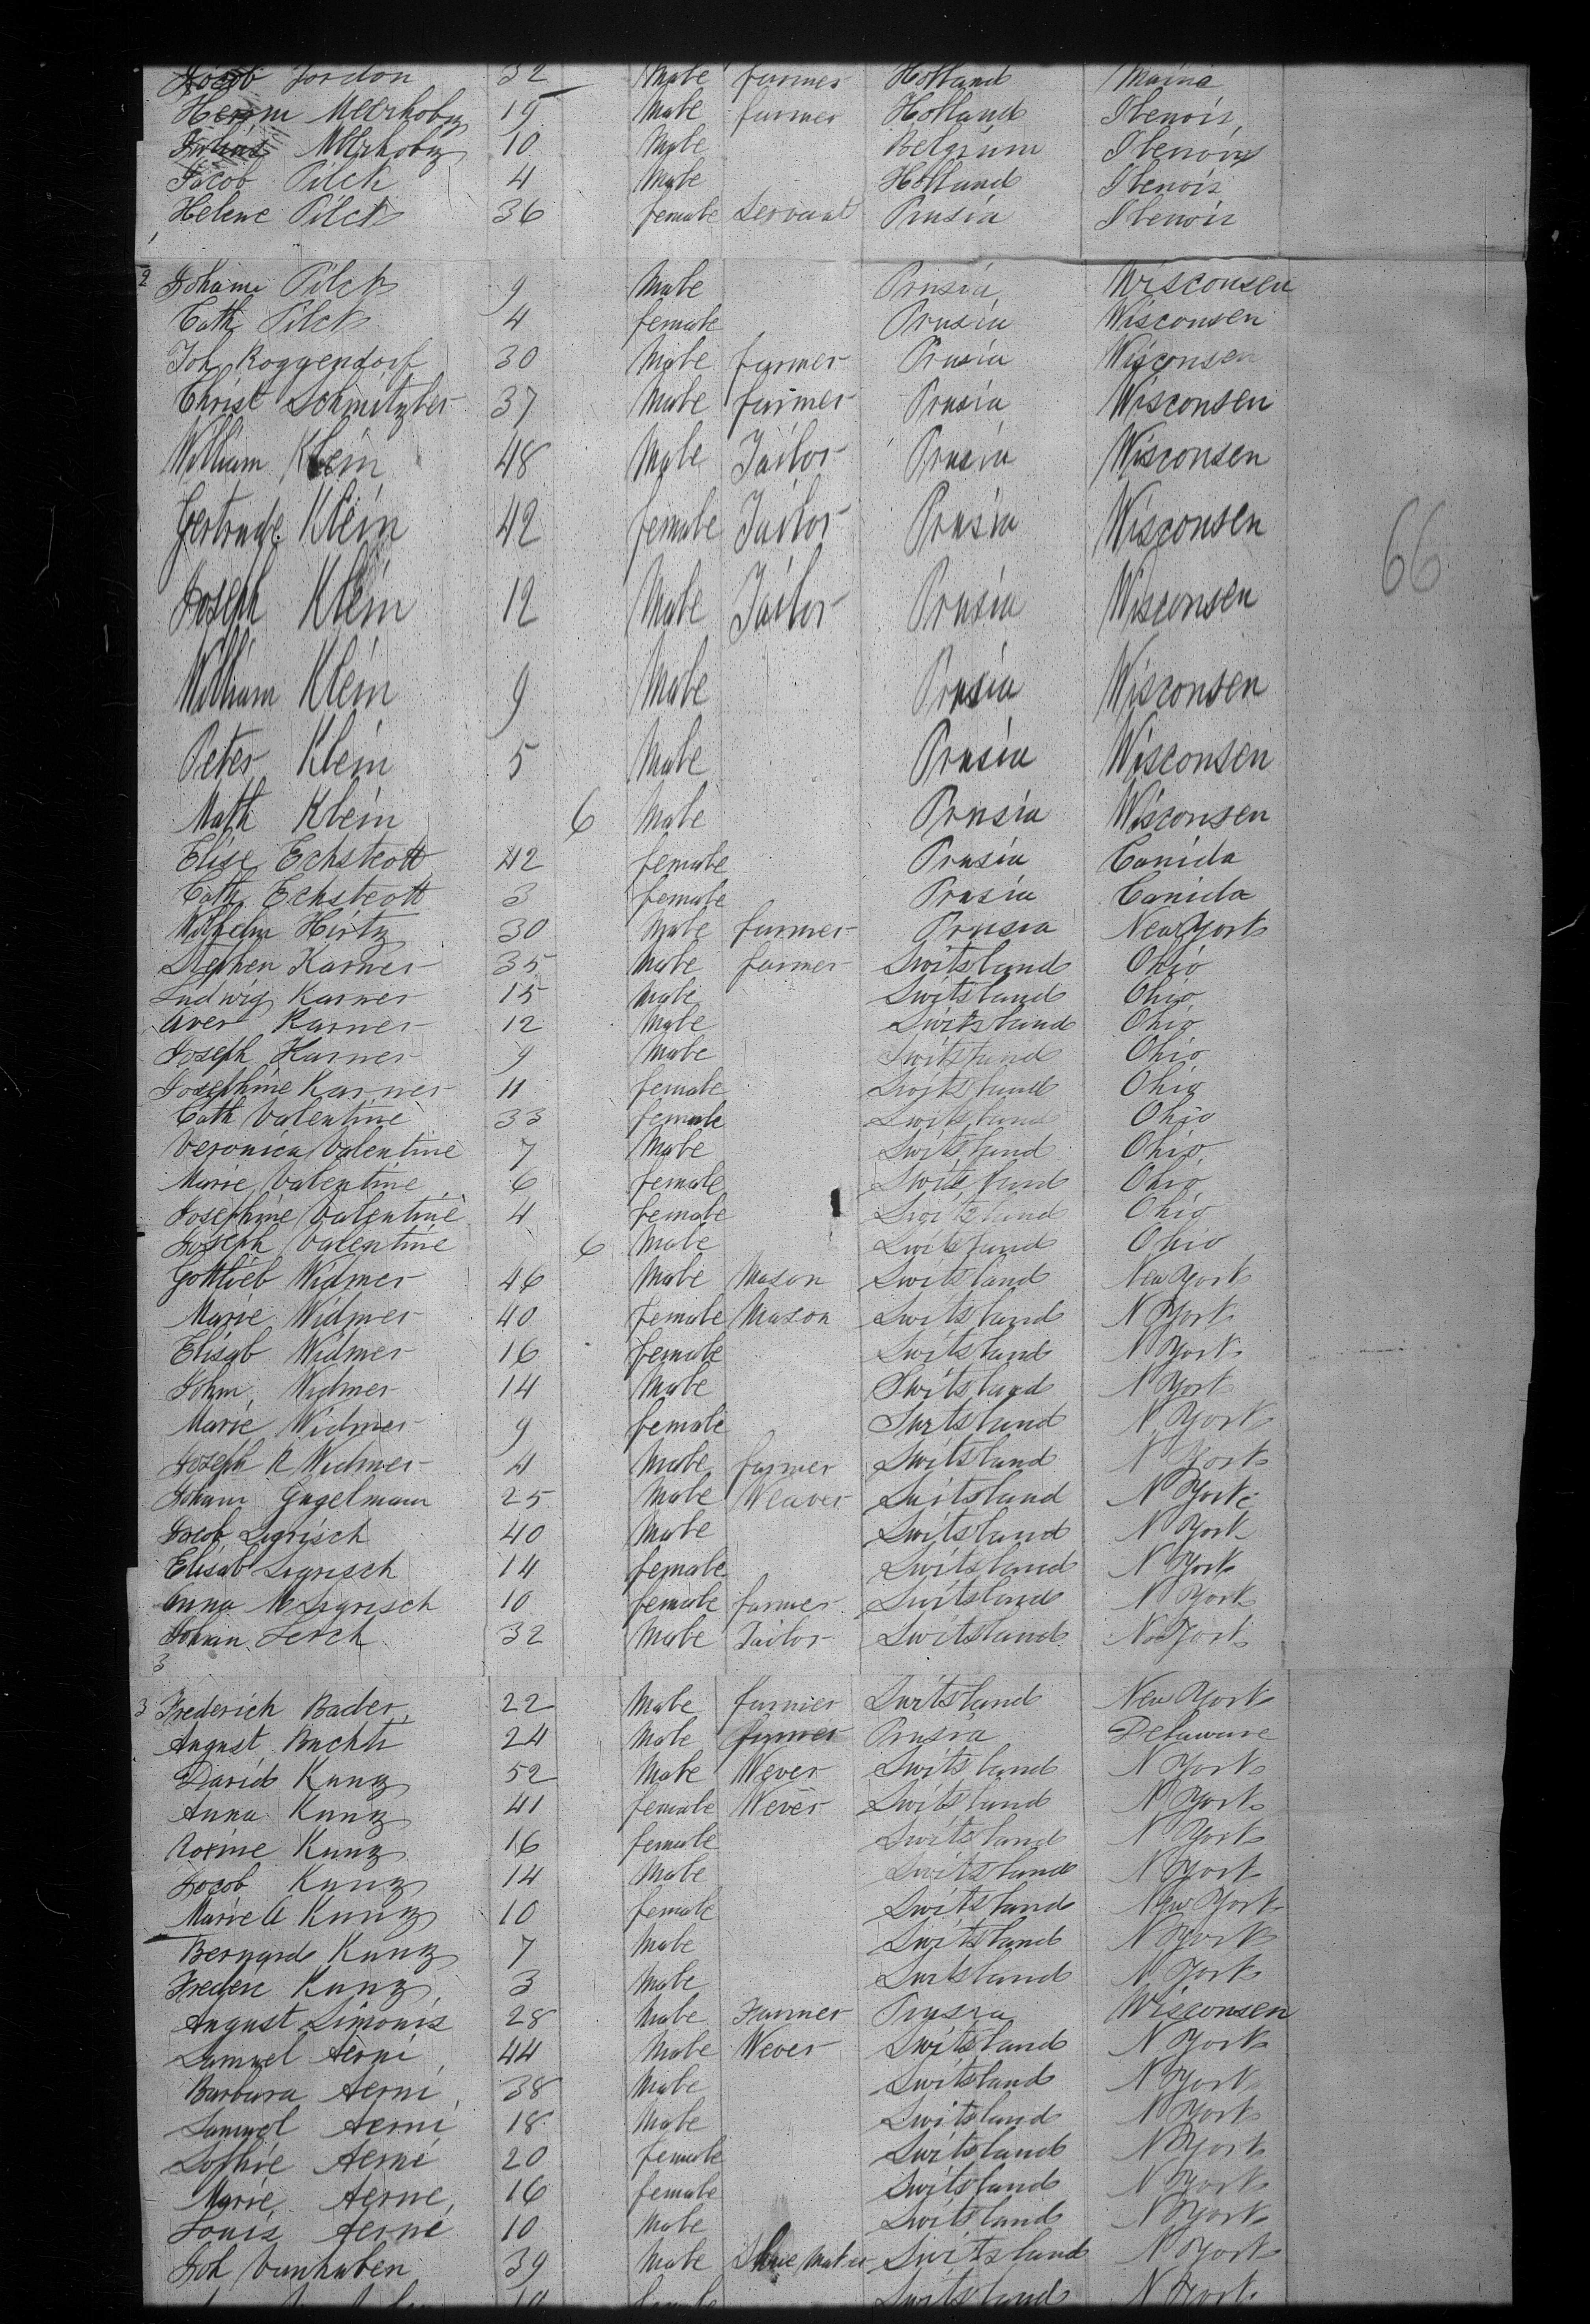 Jacob Jordon 32 Male farmer Holland Maina
Herm Meerkobz 19 Male farmer Holland Ilenois
Julius Meerkobz 10 Male Belgium Ilenois
Jacob Pilck 4 Male Holland Ilenois
Helene Pilck 36 female Servant Prusia Ilenois
2 Johann Pilck 9 Male Prusia Wisconsen
Cath Pilck 4 female Prusia Wisconsen
Joh Roggendorf 30 Male farmer Prusia Wisconsen
Christ Schmitzler 37 Male farmer Prusia Wisconsen
William Klein 48 Male Tailor Prusia Wisconsen
Gertrude Klein 42 female Tailor Prusia Wisconsen
66
Joseph Klein 12 Male Tailor Prusia Wisconsen
William Klein 9 Male Prusia Wisconsen
Peter Klein 5 Male Prusia Wisconsen
Math Klein 6 Male Prusia Wisconsen
Elise Echsteott 42 female Prusia Canida
Cath Echsteott 3 female Prusia Canida
Wilhelm Hirtz 30 Male farmer Prusia New York
Stephen Karner 35 Male farmer Switsland Ohio
Ludwig Karner 15 Male Switsland Ohio
Aver Karner 12 Male Switsland Ohio
Joseph Karner 9 Male Switsland Ohio
Josephine Karner 11 female Switsland Ohio
Cath Valentine 33 female Switsland Ohio
Veronica Valentine 7 Male Switsland Ohio
Marie Valentine 6 female Switsland Ohio
Josephine Valentine 4 female Switsland Ohio
Joseph Valentine 6 Male Switsland Ohio
Gottlieb Widmer 46 Male Mason Switsland New York
Marie Widmer 40 female Mason Switsland N York
Elisab Widmer 16 female Switsland N York
Johm Widmer 14 Male Switsland N York
Marie Widmer 9 female Switsland N York
Joseph R Widmer 4 Male farmer Switsland N York
Johann Gugelmann 25 Male Weaver Switsland N York
Jacob Sigrisch 40 Male Switsland N York
Elisab Sigrisch 14 female Switsland N York
Anna M Sigrisch 10 female farmer Switsland N York
Johan Lerch 32 Male Tailor Switsland N York
3
3 Frederich Bader 22 Male farmer Switsland New York
August Buchti 24 Male farmer Prusia Delaware
David Kunz 52 Male Wever Switsland N York
Anna Kunz 41 female Wever Switsland N York
Rosine Kunz 16 female Switsland N York
Jacob Kunz 14 Male Switsland N York
Marie A Kunz 10 female Switsland New York
Bernard Kunz 7 Male Switsland N York
Frederc Kunz 3 Male Switsland N York
August Simonis 28 Male Farmer Prusia Wisconsen
Samuel Aerni 44 Male Wever Switsland N York
Barbara Aerni 38 Male Switsland N York
Samuel Aerni 18 Male Switsland N York
Sophie Aerni 20 female Switsland N York
Marie Aerne 16 female Switsland N York
Louis Aerne 10 Male Switsland N York
Joh Vanhaben 39 Male Shue Maker Switsland N York
Switsland N York